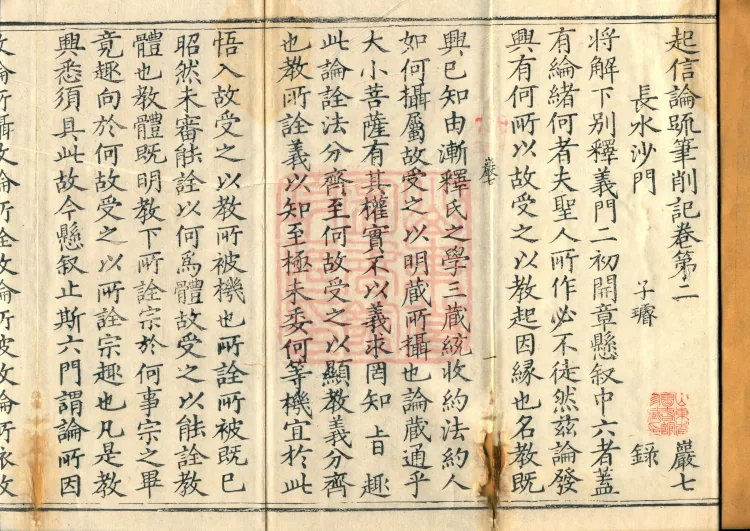 起信論疏筆削記卷第二 嚴七
長水沙門 子璿 錄
將解下別釋義門二初開章懸叙中六者蓋
有綸緒何者夫聖人所作必不徒然茲論發
興有何所以故受之以教起因緣也名教既
嚴七 一
興已知由漸釋氏之學三藏統收約法約人
如何攝屬故受之以明藏所攝也論藏通乎
大小菩薩有其權實不以義求罔知旨趣
此論詮法分齊至何故受之以顯教義分齊
也教所詮義以知至極未委何等機宜於此
悟入故受之以教所被機也所詮所被既已
昭然未審能詮以何爲體故受之以能詮教
體也教體既明教下所詮宗於何事宗之畢
竟趣向於何故受之以所詮宗趣也凡是教
興悉須具此故今懸叙止斯六門謂論所因
故論所攝故論所詮故論所被故論所依故